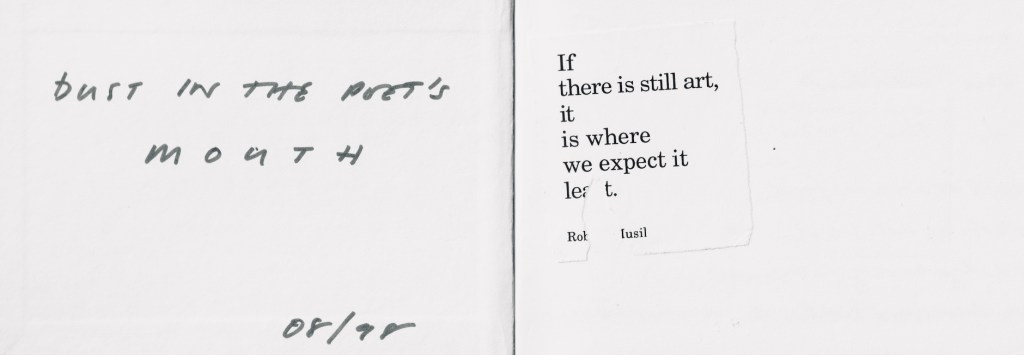 DUST IN THE POET'S
MOUTH
08/98
If
there is still art,
it
is where
we expect it